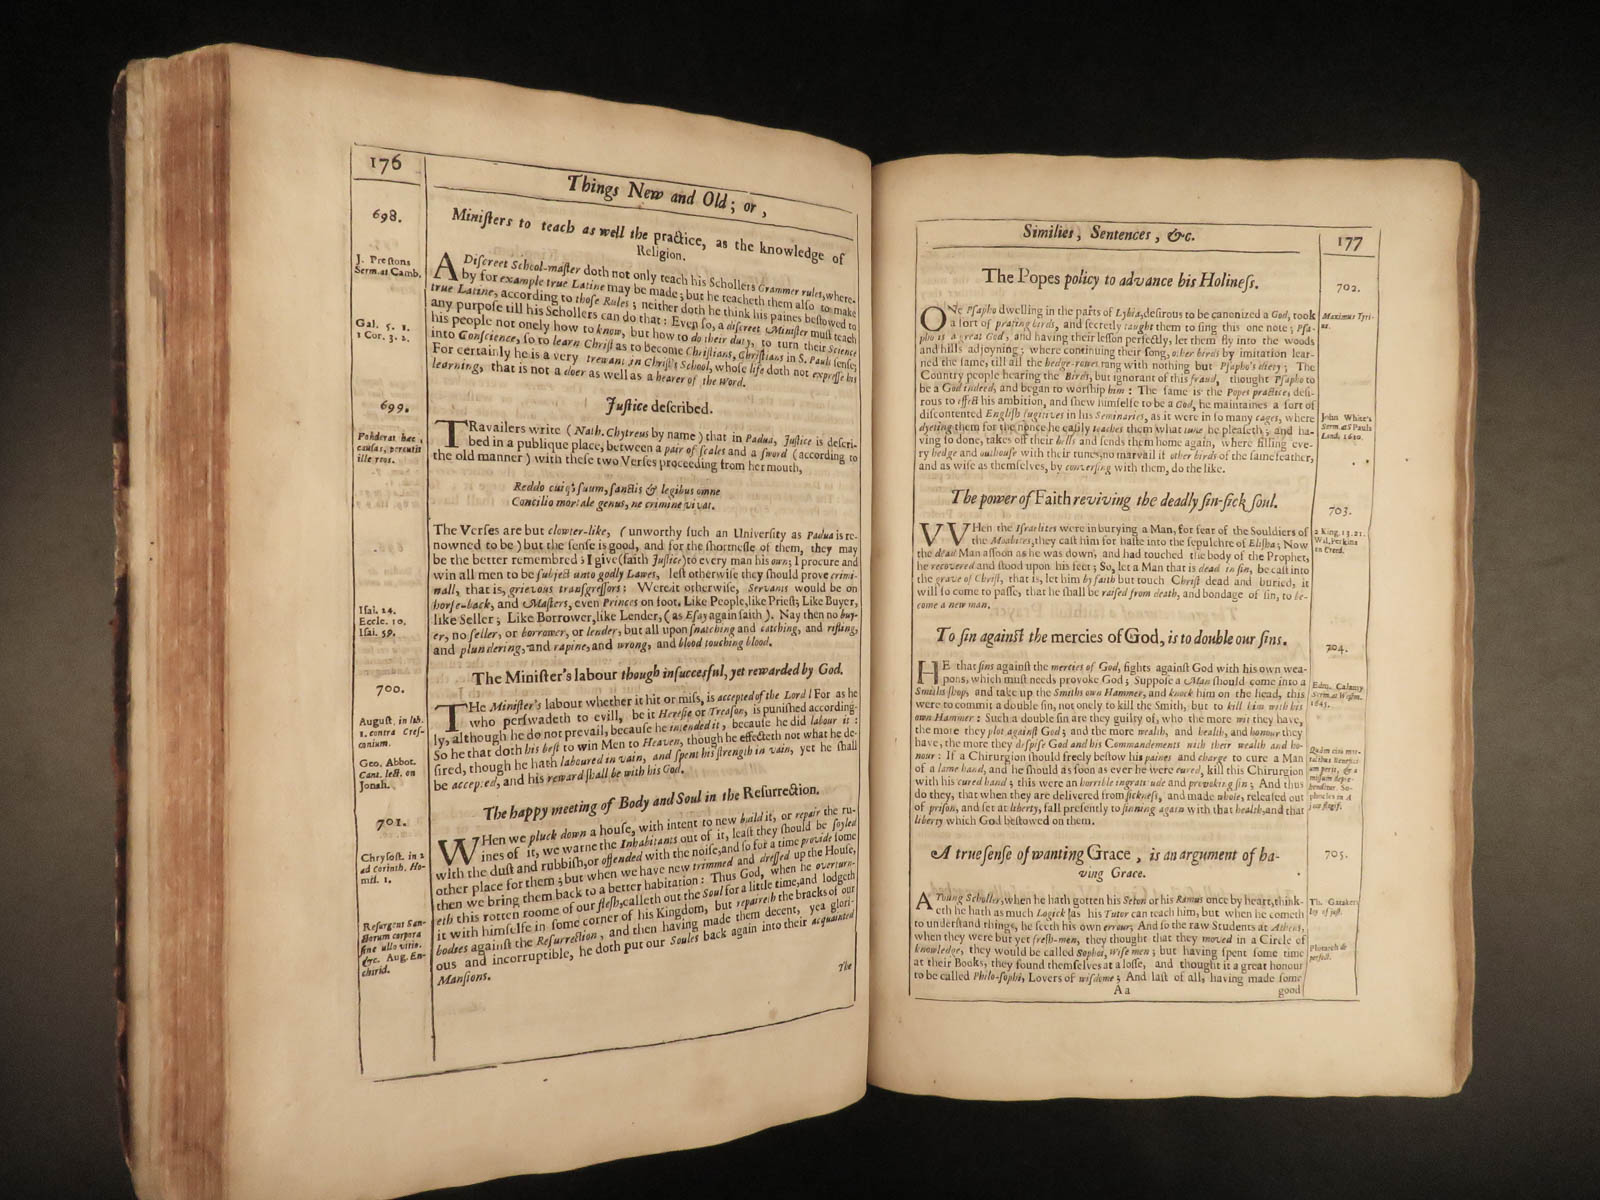 176
Things New and Old; or,
698.
Miniſters to teach as well the practice, as the knowledge of
Religion.
J. Preſtons
Serm. at Camb.
A Diſcreet School-maſter doth not only teach his Schollers Grammer rules, where-
by for example true Latine may be made; but he teacheth them alſo to make
true Latine, according to thoſe Rules; neither doth he think his paines beſtowed to
any purpoſe till his Schollers can do that: Even ſo, a diſcreet Miniſter muſt teach
Gal. 5. 1.
1 Cor. 3. 2.
his people not onely how to know, but how to do their duty, to turn their Science
into Conſcience, ſo to learn Chriſt as to become Chriſtians, Chriſtians in S. Pauls ſenſe;
For certainly he is a very trewant in Chriſt's School, whoſe life doth not expreſſe his
learning, that is not a doer as well as a hearer of the Word.
699.
Juſtice deſcribed.
Ponderat hæc,
cauſas, percutit
ille reos.
TRavailers write (Nath. Chytreus by name) that in Padua, Juſtice is deſcri-
bed in a publique place, between a pair of ſcales and a ſword (according to
the old manner) with theſe two Verſes proceeding from her mouth,
Reddo cuiq; ſuum, ſanctis & legibus omne
Concilio mortale genus, ne crimine vivat.
The Verſes are but clowter-like, (unworthy ſuch an Univerſity as Padua is re-
nowned to be) but the ſenſe is good, and for the ſhortneſſe of them, they may
be the better remembred; I give (ſaith Juſtice) to every man his own; I procure and
win all men to be ſubject unto godly Lawes, leſt otherwiſe they ſhould prove crimi-
nall, that is, grievous tranſgreſſors: Were it otherwiſe, Servants would be on
Iſai. 24.
Eccle. 10.
Iſai. 59.
horſe-back, and Maſters, even Princes on foot. Like People, like Prieſt; Like Buyer,
like Seller; Like Borrower, like Lender, (as Eſay again ſaith). Nay then no buy-
er, no ſeller, or borrower, or lender, but all upon ſnatching and catching, and rifling,
and plundering, and rapine, and wrong, and blood touching blood.
700.
The Miniſter's labour though inſucceſful, yet rewarded by God.
Auguſt. in lib.
1. contra Creſ-
conium.
Geo. Abbot.
Cant. lect. on
Jonah.
THe Miniſter's labour whether it hit or miſs, is accepted of the Lord! For as he
who perſwadeth to evill, be it Hereſie or Treaſon, is puniſhed according-
ly, although he do not prevail, becauſe he intended it, becauſe he did labour it:
So he that doth his beſt to win Men to Heaven, though he effecteth not what he de-
ſired, though he hath laboured in vain, and ſpent his ſtrength in vain, yet he ſhall
be accepted, and his reward ſhall be with his God.
701.
The happy meeting of Body and Soul in the Reſurrection.
Chryſoſt. in 2
ad Corinth. Ho-
mil. 1.
WHen we pluck down a houſe, with intent to new build it, or repair the ru-
ines of it, we warne the Inhabitants out of it, leaſt they ſhould be ſoyled
with the duſt and rubbiſh, or offended with the noiſe, and ſo for a time provide ſome
other place for them; but when we have new trimmed and dreſſed up the Houſe,
then we bring them back to a better habitation: Thus God, when he overturn-
eth this rotten roome of our fleſh, calleth out the Soul for a little time, and lodgeth
Reſurgent San-
ctorum corpora
ſine ullo vitio.
&c. Aug. En-
chirid.
it with himſelfe in ſome corner of his Kingdom, but repaireth the bracks of our
bodies againſt the Reſurrection, and then having made them decent, yea glori-
ous and incorruptible, he doth put our Soules back again into their acquainted
Manſions.
The
Similies, Sentences, &c.
177
The Popes policy to advance his Holineſs.
702.
Maximus Tyri-
us.
ONe Pſapho dwelling in the parts of Lybia, deſirous to be canonized a God, took
a ſort of prating birds, and ſecretly taught them to ſing this one note; Pſa-
pho is a great God, and having their leſſon perfectly, let them fly into the woods
and hills adjoyning; where continuing their ſong, other birds by imitation lear-
ned the ſame, till all the hedge-rowes rang with nothing but Pſapho's diety; The
Country people hearing the Birds, but ignorant of this fraud, thought Pſapho to
be a God indeed, and began to worſhip him: The ſame is the Popes practice, deſi-
rous to effect his ambition, and ſhew himſelfe to be a God, he maintaines a ſort of
John White's
Serm. at S Pauls
Lond. 1610.
diſcontented Engliſh fugitives in his Seminaries, as it were in ſo many cages, where
dyeting them for the nonce he eaſily teaches them what tune he pleaſeth; and ha-
ving ſo done, takes off their bells and ſends them home again, where filling eve-
ry hedge and outhouſe with their tunes, no marvail if other birds of the ſame feather,
and as wiſe as themſelves, by converſing with them, do the like.
The power of Faith reviving the deadly ſin-ſick ſoul.
703.
2 King. 13. 21.
Wil. Perkins
on Creed.
VVHen the Iſraelites were in burying a Man, for fear of the Souldiers of
the Moabites, they caſt him for haſte into the ſepulchre of Eliſha; Now
the dead Man aſſoon as he was down, and had touched the body of the Prophet,
he recovered and ſtood upon his feet; So, let a Man that is dead in ſin, be caſt into
the grave of Chriſt, that is, let him by faith but touch Chriſt dead and buried, it
will ſo come to paſſe, that he ſhall be raiſed from death, and bondage of ſin, to be-
come a new man.
To ſin againſt the mercies of God, is to double our ſins.
704.
Edm. Calamy
Serm. at Weſtm.
1645.
HE that ſins againſt the mercies of God, fights againſt God with his own wea-
pons, which muſt needs provoke God; Suppoſe a Man ſhould come into a
Smiths ſhop, and take up the Smiths own Hammer, and knock him on the head, this
were to commit a double ſin, not onely to kill the Smith, but to kill him with his
own Hammer: Such a double ſin are they guilty of, who the more wit they have,
the more they plot againſt God; and the more wealth, and health, and honour they
have, the more they deſpiſe God and his Commandements with their wealth and ho-
nour: If a Chirurgion ſhould freely beſtow his paines and charge to cure a Man
of a lame hand, and he ſhould as ſoon as ever he were cured, kill this Chirurgion
with his cured hand; this were an horrible ingratitude and provoking ſin; And thus
do they, that when they are delivered from ſickneſs, and made whole, releaſed out
of priſon, and ſet at liberty, fall preſently to ſinning again with that health, and that
liberty which God beſtowed on them.
A true ſenſe of wanting Grace, is an argument of ha-
ving Grace.
705.
Th. Gataker
Plutarch de
A Young Scholler, when he hath gotten his Seton or his Ramus once by heart, think-
eth he hath as much Logick as his Tutor can teach him, but when he cometh
to underſtand things, he ſeeth his own errour; And ſo the raw Students at Athens,
when they were but yet freſh-men, they thought that they moved in a Circle of
knowledge, they would be called Sophoi, Wiſe men; but having ſpent ſome time
at their Books, they found themſelves at a loſſe, and thought it a great honour
to be called Philo-ſophi, Lovers of wiſdome; And laſt of all, having made ſome
A a
good